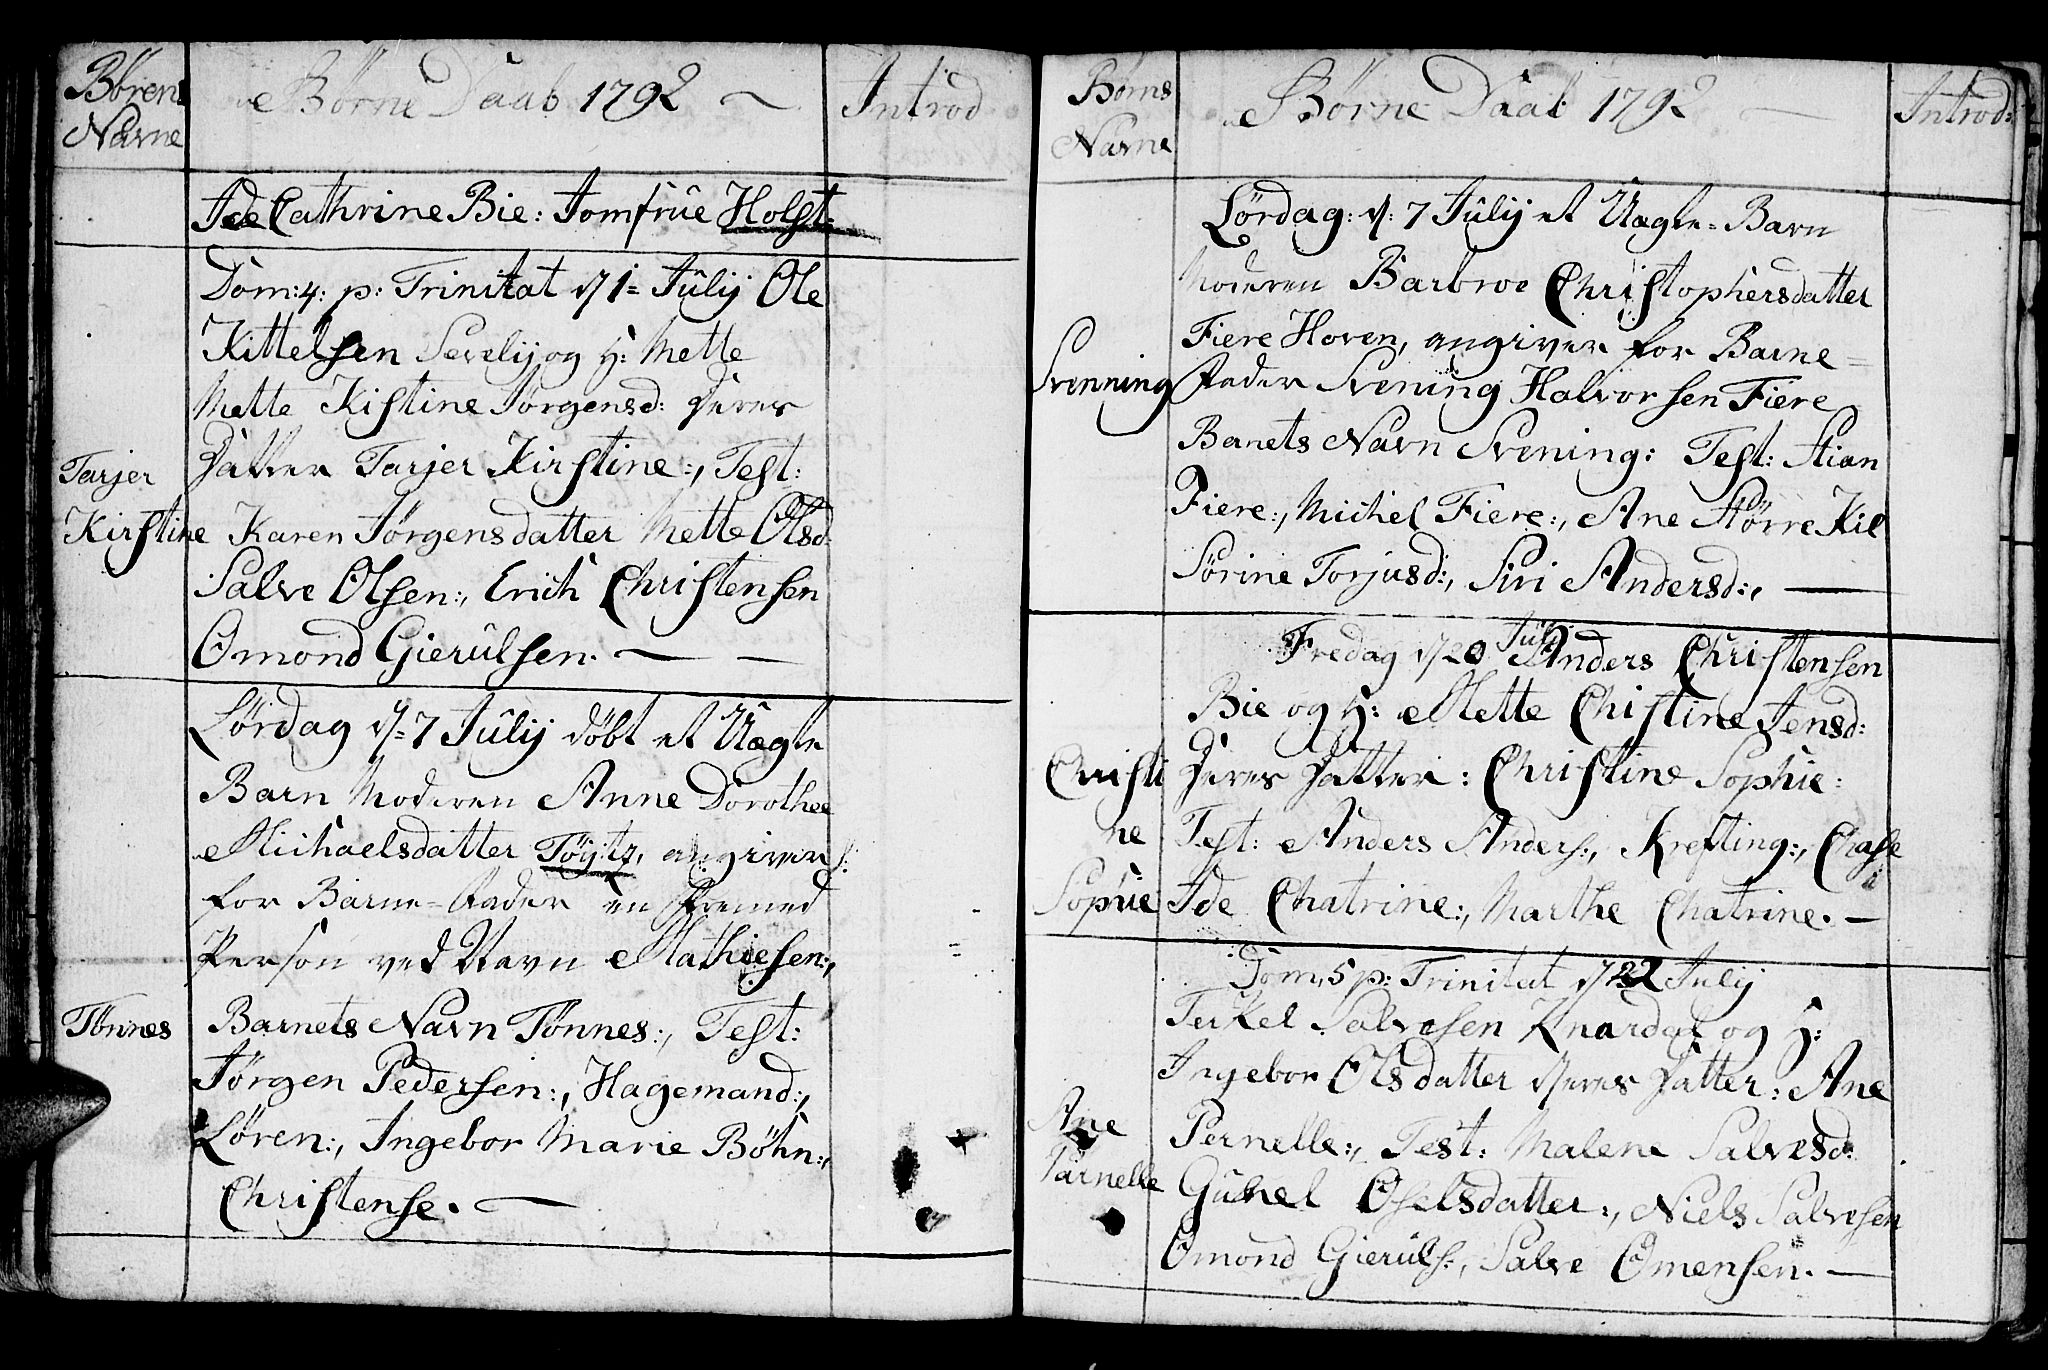 Børens
Navne
Børne Daab 1792
Introd
Ide Cathrine Bie: Jomfrue Holst:
Dom: 4: p: Trinitat d/ 1= Julij Ole
Kittelsen Sevelij og H: Mette
Mette Kistine Jørgensd: Deres
Datter Tarjer Kirstine:, Test:
Tarjer
Kirstine
Karen Jørgensdatter Mette Olsd
Salve Olsen:, Erich Christensen
Omond Gierulsen. —
Lørdag d/= 7 Julij døbt et Uægte
Barn Moderen Anne Dorothea
Michaelsdatter Töytz, angiver
for Barne-Fader en fremed
Person ved Navn Mathiesen:,
Tønnes
Barnets Navn Tønnes:, Test:
Jørgen Pedersen:, Hagemand:,
Løren:, Ingebor Marie Böhn:,
Christense. —
Børns
Navne
Børne Daab 1792
Introd:
Lørdag: d/: 7 Julij et Uægte-Barn
Moderen Barbroe Christophersdatter
Fiere Hoven, angiver for Barne=
Svenning
Fader Svening Halvorsen Fiere
Banets Navn Svening: Test: Stian
Fiere:, Michel Fiere:, Ane Større Kil
Sørine Torjusd:, Siri Andersd:, —
Fredag d/ 20 Juli Anders Christensen
Bie og H: Mette Christine Jensd:
Christi
ne
Sophie
Deres Datter: Christine Sophie:
Test: Anders Anders:, Krefting:, Chasse
Ide Chatrine:, Marthe Chatrine. —
Dom: 5 p: Trinitat d/ 22 Julij
Terkel Salvesen Knardal og H:
Ingebor Olsdatter deres Datter: Ane
Ane
Parnelle
Pernelle:, Test: Malene Salvesd:
Gunel Oselsdatter:, Niels Salvesen
Omond Gieruls:, Salve Omensen. —